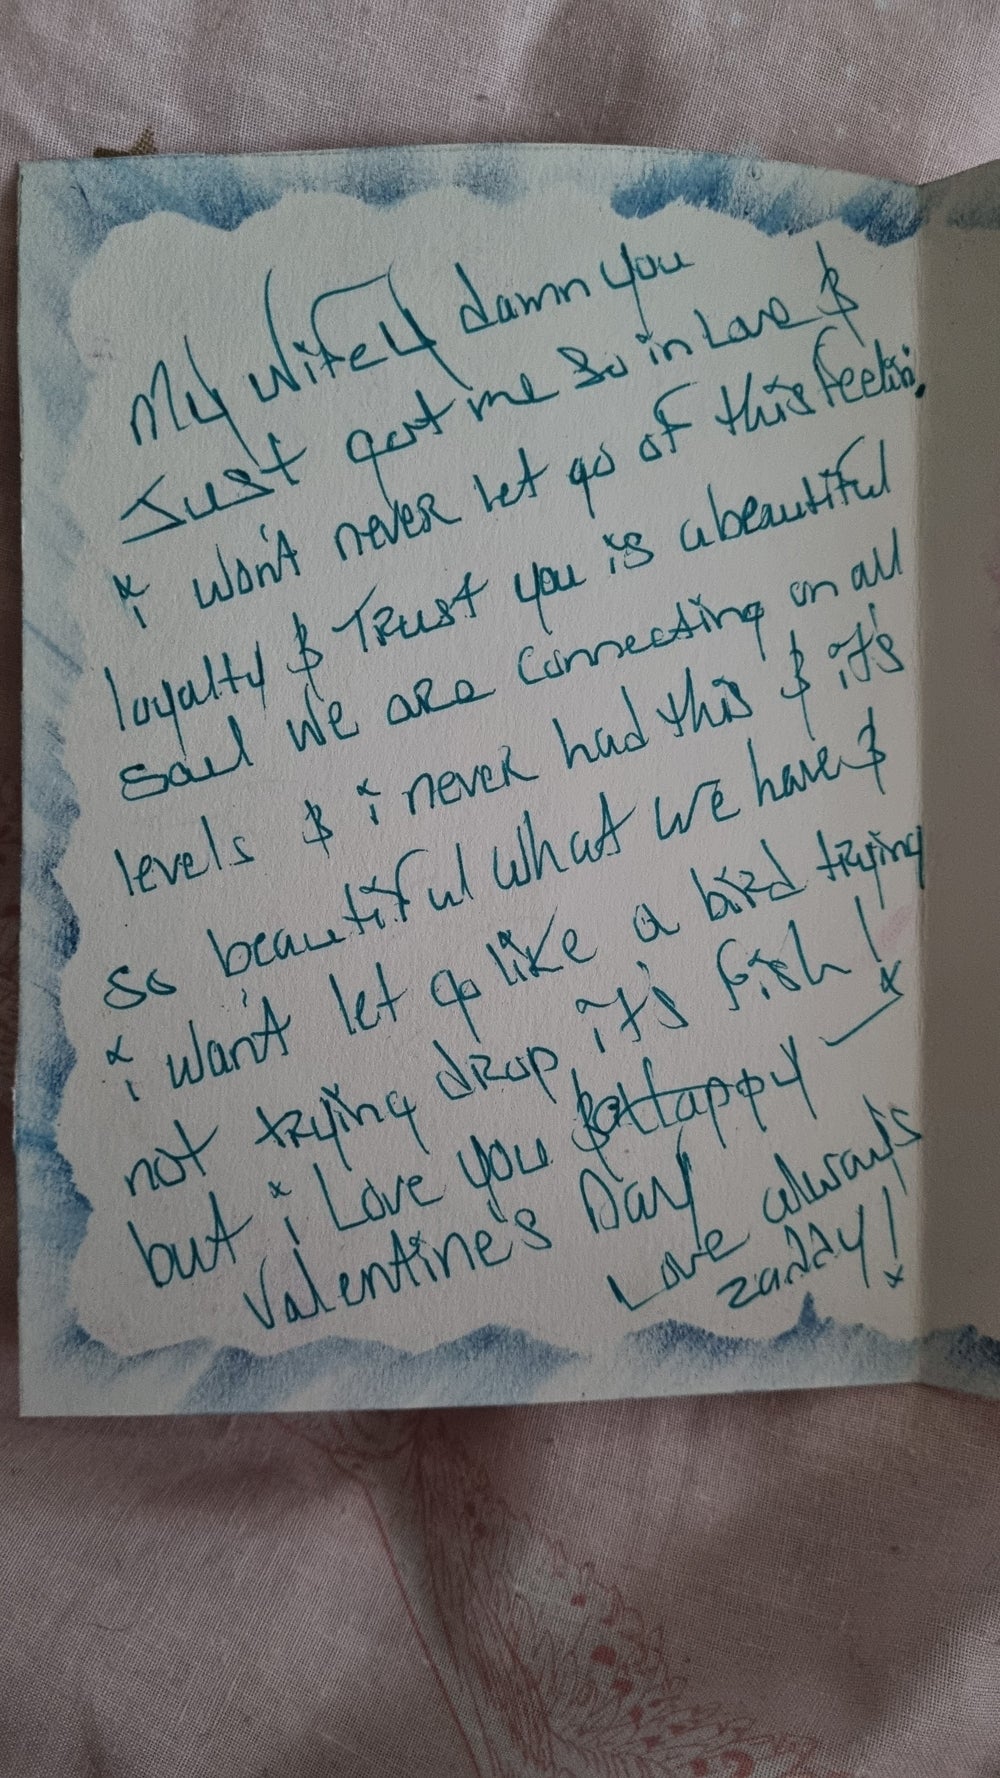 My Wifey damn you
Just got me so in Love &
i won't never let go of this feelin.
loyalty & Trust you is a beautiful
soul we are connecting on all
levels & i never had this & it's
so beautiful what we have &
i wan't let go like a bird trying
not trying drop it's fish!
but i Love you & Happy
Valentine's Day
Love always
zaddy!